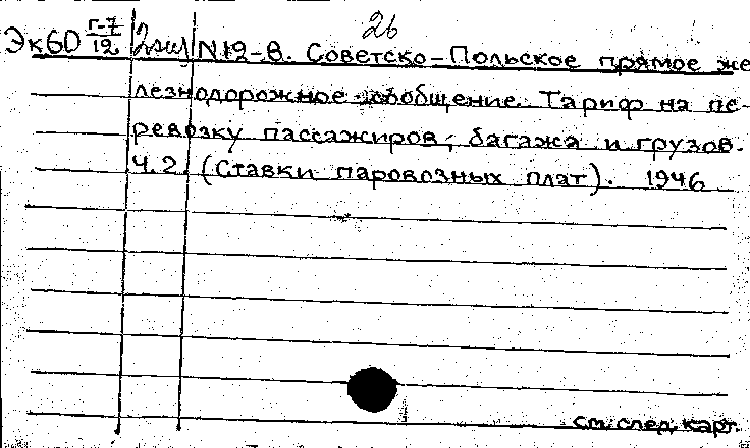 26
Эк60 Г-7/12 2экз N12-В. Советско-Польское прямое же
лезнодорожное сообщение. Тариф на пе-
ревозку пассажиров, багажа и грузов.
Ч.2. (Ставки паровозных плат). 1946
см. след. карт.